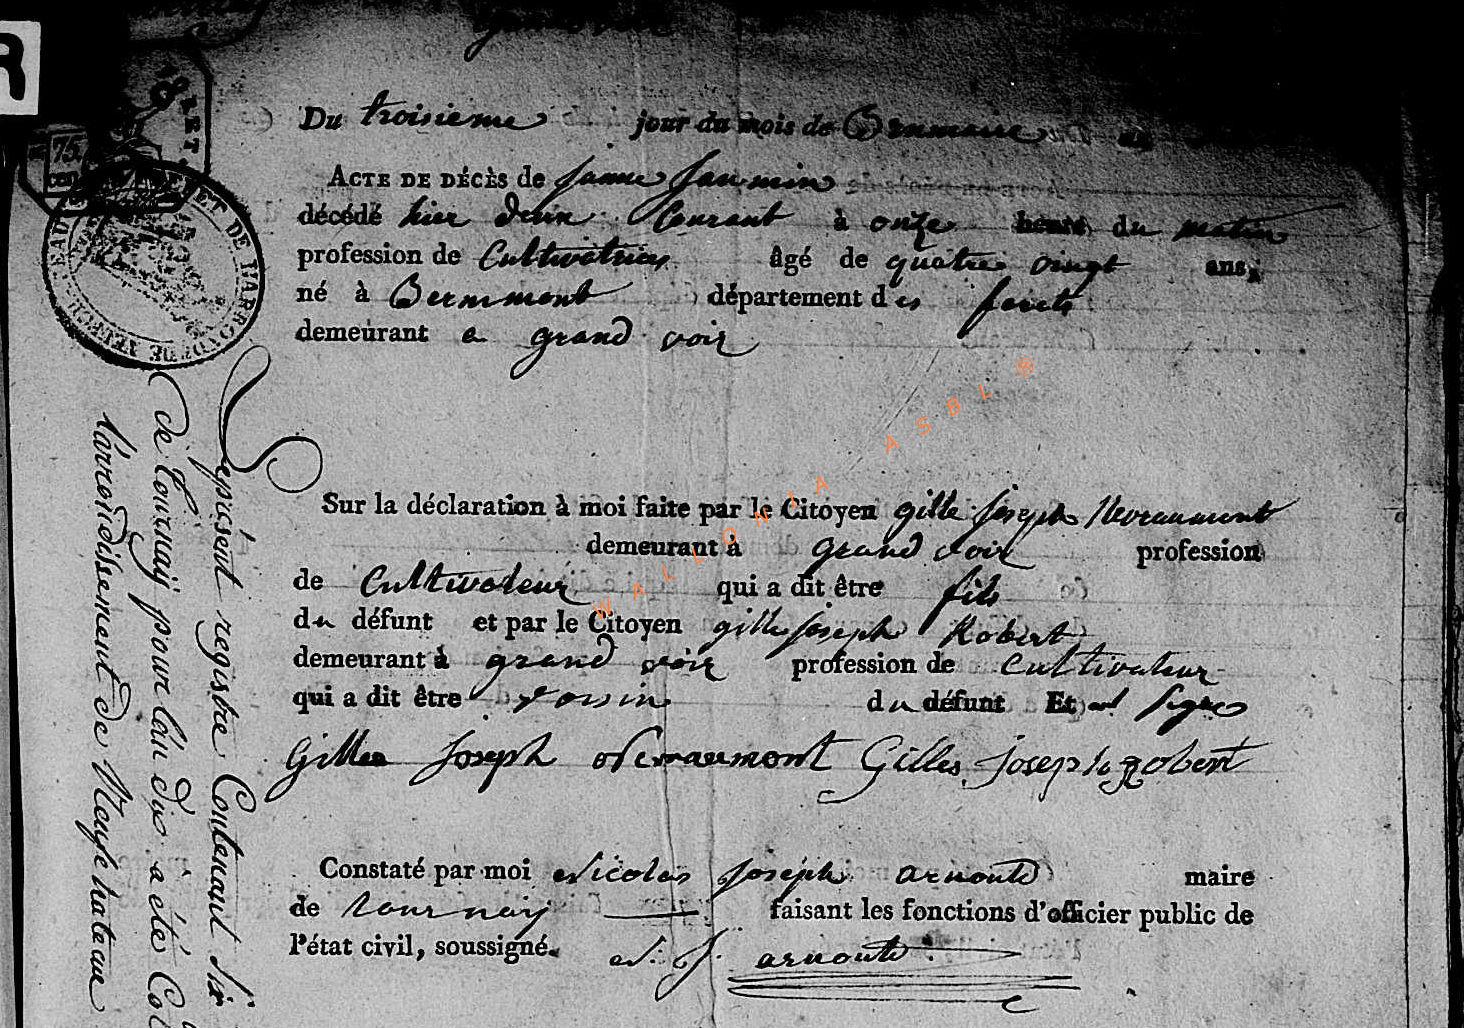 R
75
cen
Du troisieme jour du mois de Brumaire an
ACTE DE DÉCÈS de jaumin
décédé hier deux Courant à onze heures du matin
profession de Cultivatrice âgé de quatre vingt ans,
né à Bernimont département des forets
demeurant a grand voir
Sur la déclaration à moi faite par le Citoyen gille joseph Nevraumont
demeurant à grand voir profession
de Cultivateur qui a dit être fils
du défunt et par le Citoyen gille joseph Robert
demeurant à grand voir profession de cultivateur
qui a dit être voisin du défunt Et ont signe
Gilles Joseph Nevraumont Gilles joseph Robert
Constaté par moi Nicolas Joseph arnould maire
de tournay faisant les fonctions d'officier public de
l'état civil, soussigné.
N. J. arnould.
Le présent registre Contenant Six
de Tournay pour l'an dix a été Co
l'arrondissement de Neufchateau
WALLONIA ASBL ®